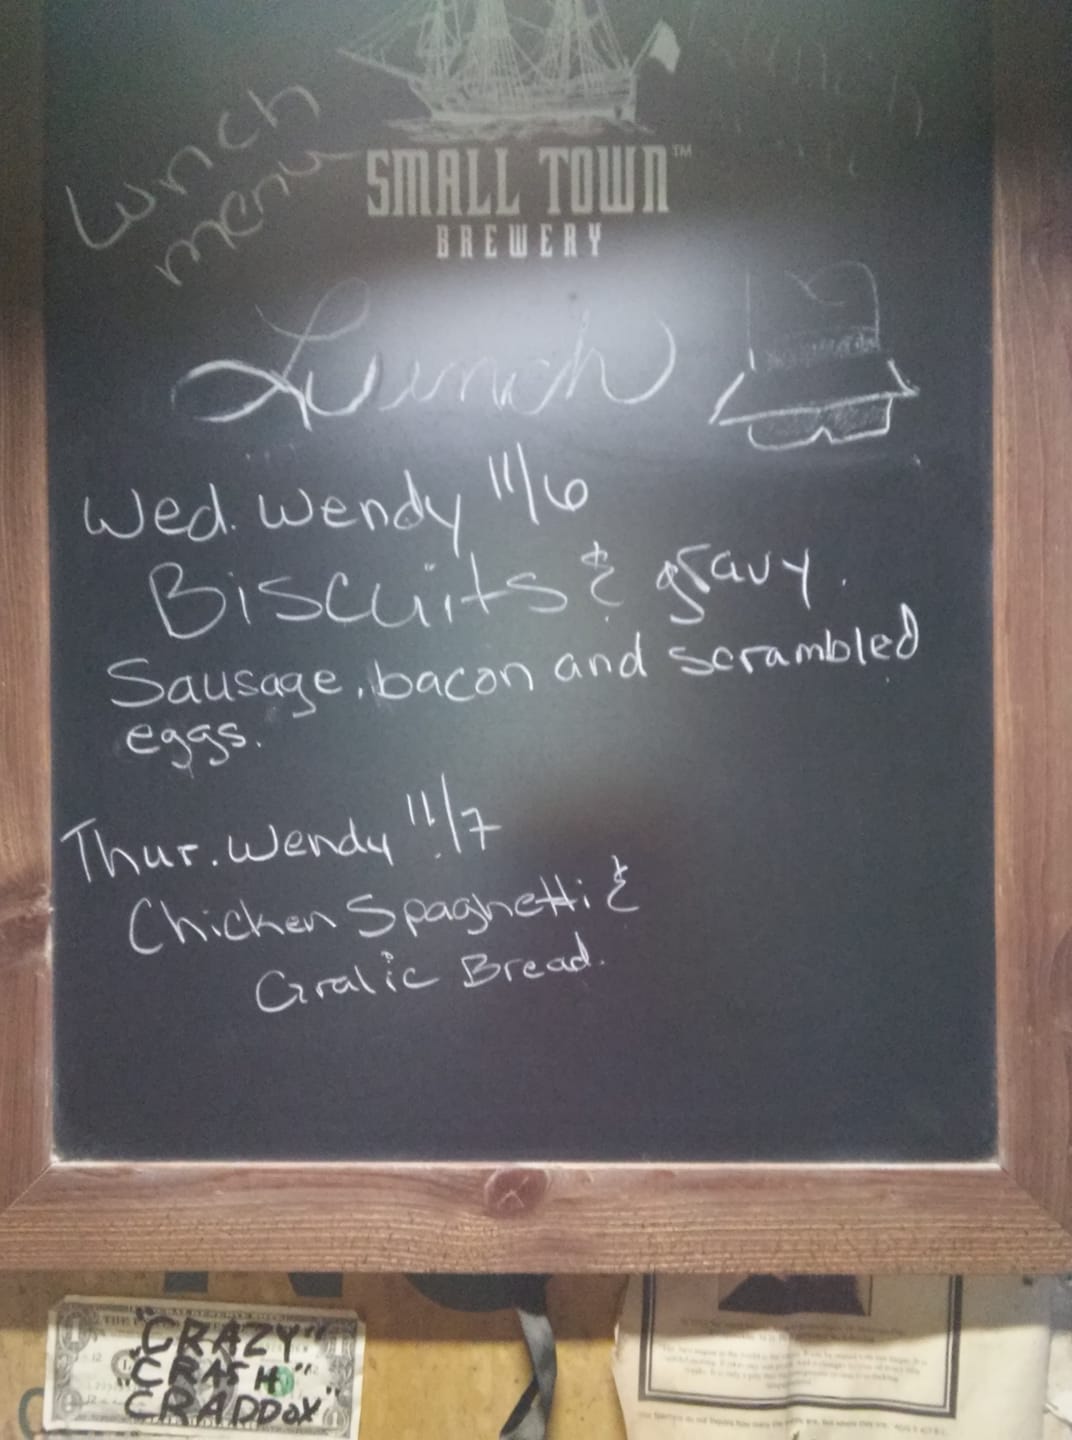 Lunch
menu
SMALL TOWN™
BREWERY
Lunch
Wed. Wendy 11/6
Biscuits & gravy.
Sausage, bacon and scrambled
eggs.
Thur. Wendy 11/7
Chicken Spaghetti &
Gralic Bread.
"CRAZY"
"CRASH"
CRADDOX"